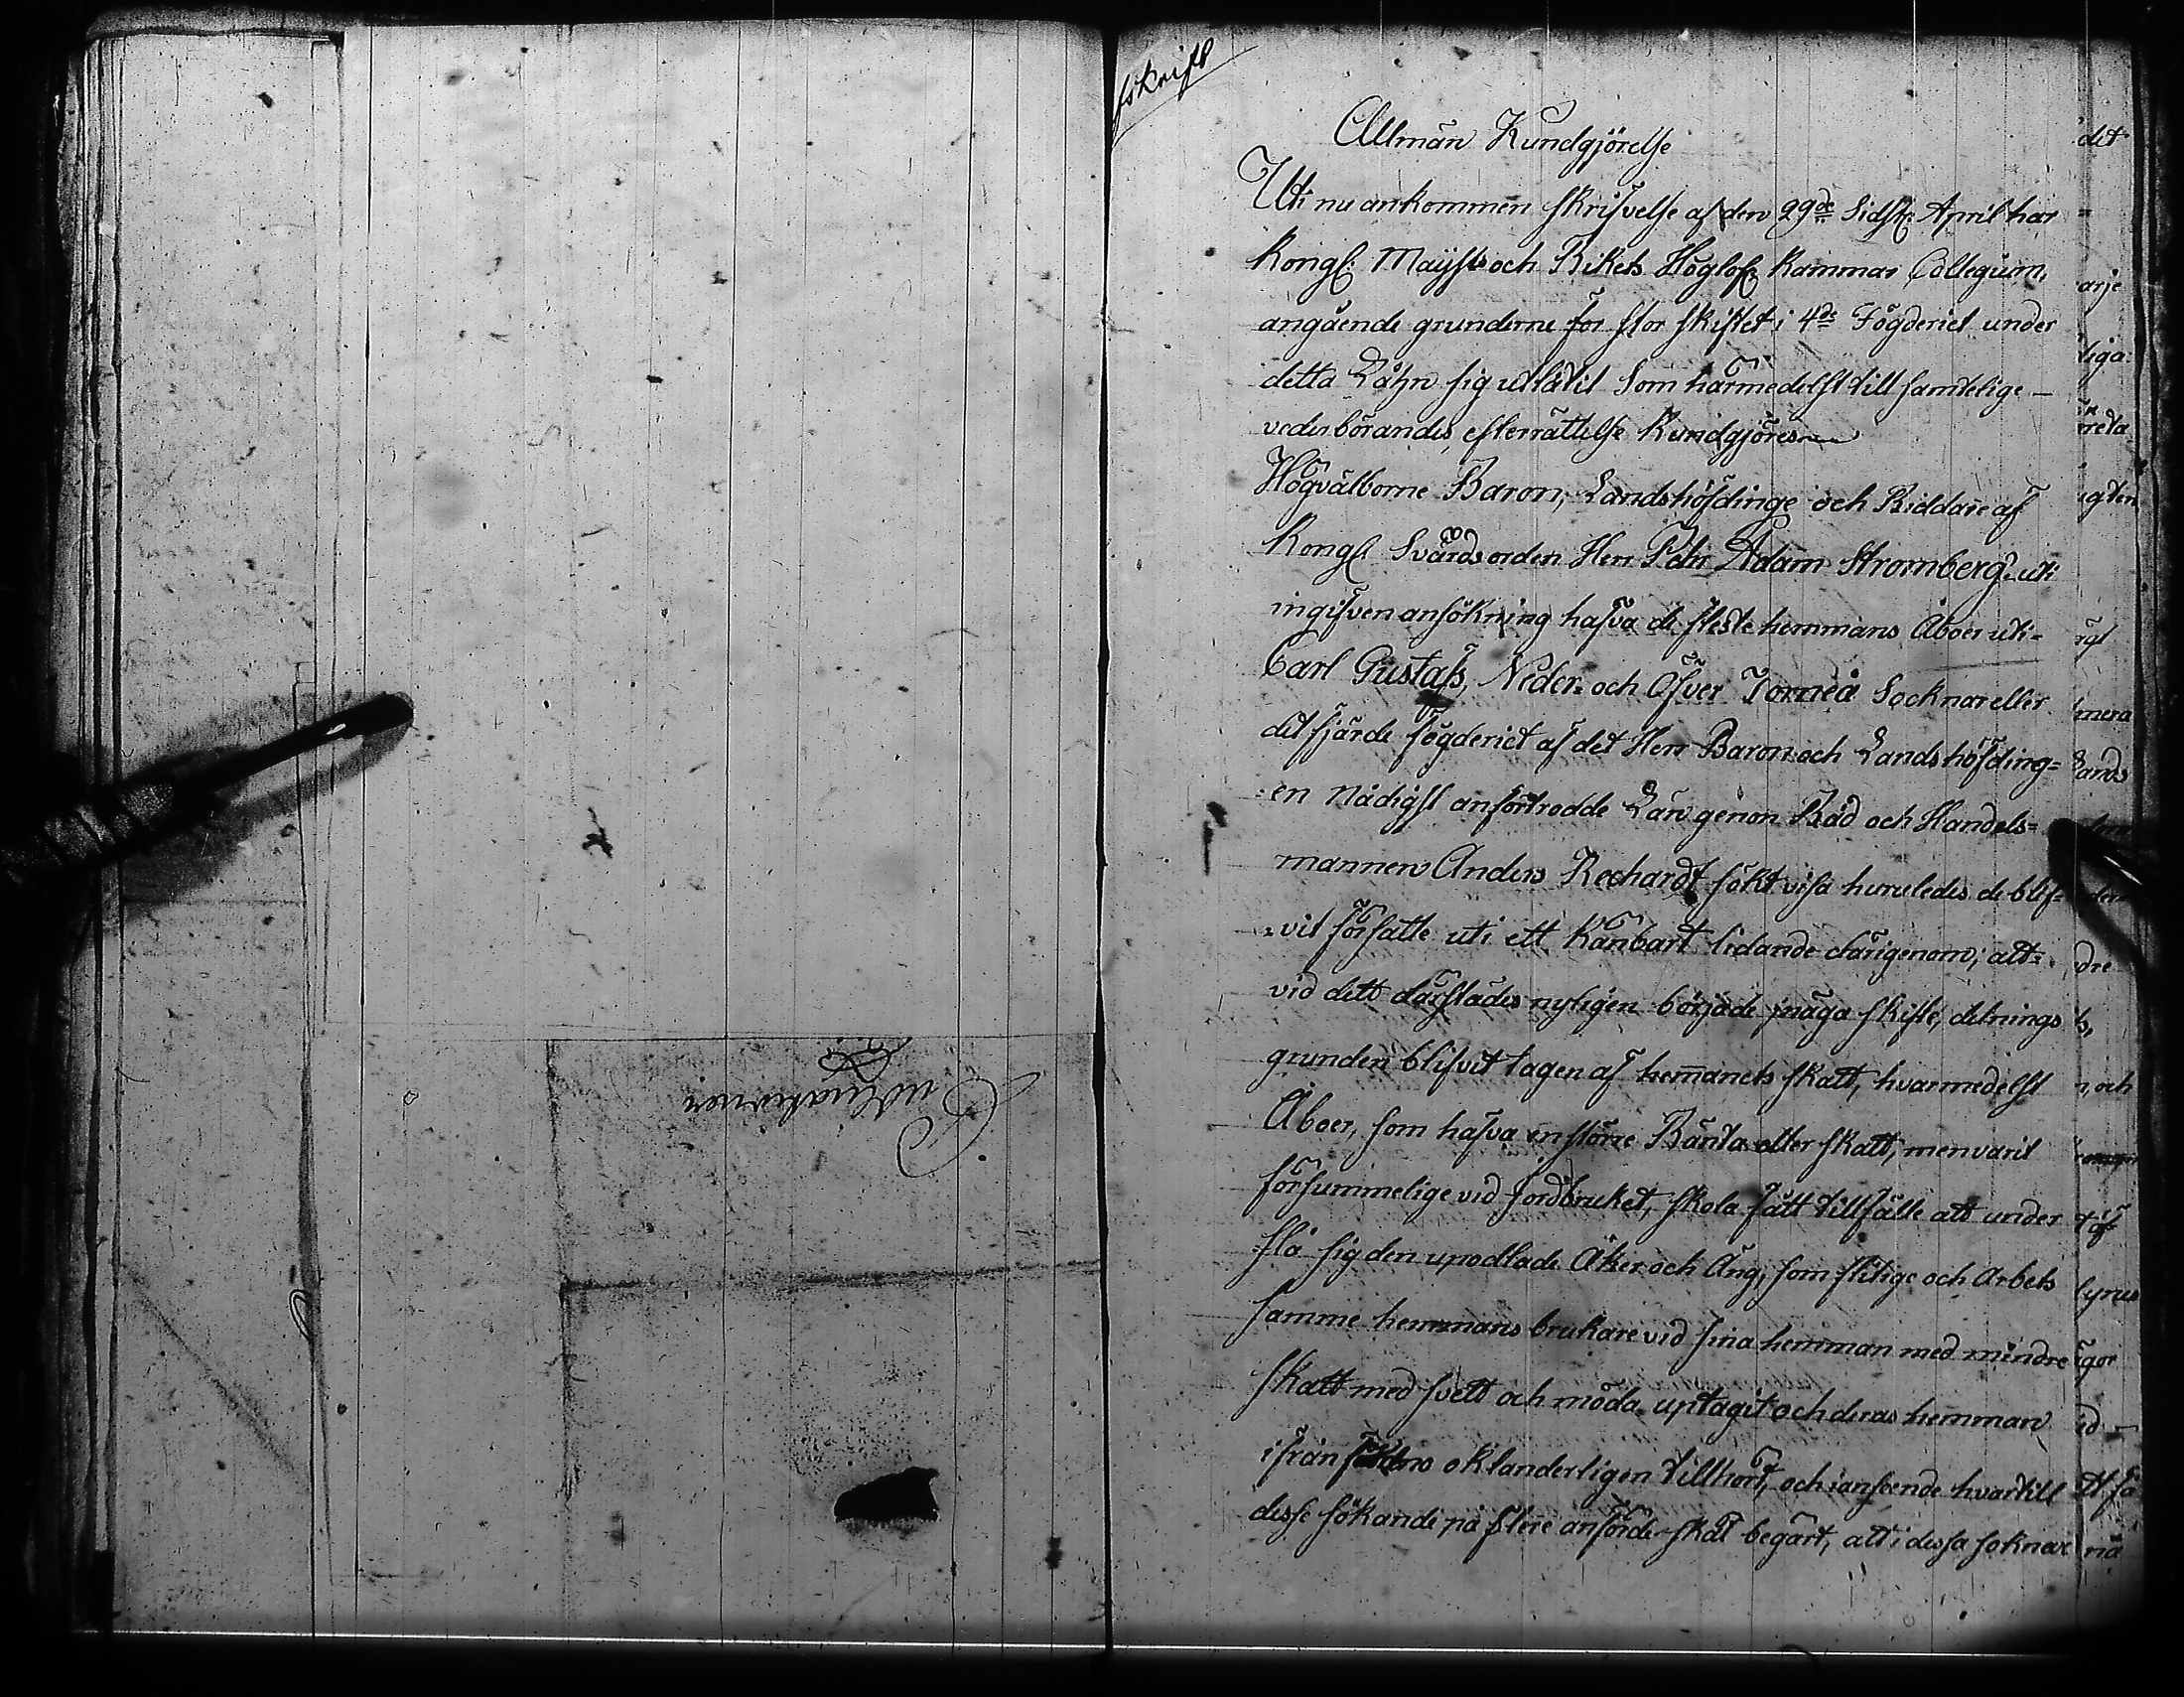 fskrift
Allmän Kundgjörelse
Uti nu ankommen skrifvelse af den 29de sidstl. April har
Kongl. Maijsts och Rikets Höglofl. Kammar Collegium,
angående grunderne för stor skiftet i 4de Fögderiet under
detta Lähn sig utlåtit som härmedelst till samtelige
vederbörandes efterrättelse Kundgjöres
Högvälborne Baron, Landshöfdinge och Riddare af
Kongl Svärdsorden Herr Pehr Adam Stromberg. uti
ingifven ansökning hafva de fleste hemmans Åboer uti-
Carl Gustafs, Neder- och Öfver Torneå Socknar eller
det fjärde fögderiet af det Herr Baron och Landshöfding=
=en Nådigst anförtrodde Län genon Råd och Handels=
mannen Anders Rechardt sökt visa huruledes de blif=
=vit försatte uti ett känbart lidande därigenom; att=
vid dett därstädes nyligen började ägo skifte, delnings
grunden blifvit tagen af hemanets skatt, hvarmedelst
Åboer, som hafva en större Ränta eller skatt, men varit
försummelige vid jordbruket, skola fått tillfälle att under
slå sig den upodlade Åker och Äng, som flitige och Arbets
samme hemmans brukare vid sina hemman med mindre
skatt med svett och möda uptagit och deras hemman
ifrån oklanderligen tillhört, och i anseende hvartill
desse sökande på flere anförde skäl begärt, att i dessa soknar